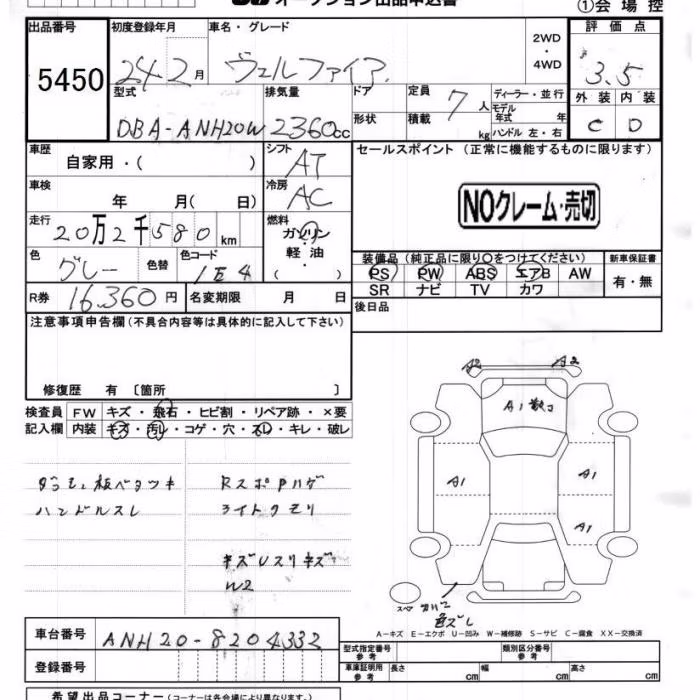 オークション出品申込書
①会場控
出品番号 初度登録年月 車名・グレード 2WD ・ 4WD 評価点
5450 24 2月 ヴェルファイア 3.5
型式 排気量 ドア 定員 7人 ディーラー・並行 外装 内装
DBA-ANH20W 2360cc 形状 積載 kg モデル年式 年 C D
ハンドル 左・右
車歴 自家用・( ) シフト AT セールスポイント (正常に機能するものに限ります)
車検 年 月( 日) 冷房 AC NOクレーム・売切
走行 20万2千580km 燃料 ガソリン
色 グレー 色替 色コード 1E4 軽・油 ( )
装備品 (純正品に限り○をつけてください) 新車保証書
PS PW ABS エアB AW 有・無
SR ナビ TV カワ
R券 16,360円 名変期限 月 日
後日品
注意事項申告欄 (不具合内容等は具体的に記入して下さい)
修復歴 有 〔箇所 〕
検査員 FW キズ・飛石・ヒビ割・リペア跡・×要
記入欄 内装 キズ・汚レ・コゲ・穴・スレ・キレ・破レ
A2 A2
A1
A1 A1
A1
ハンドルスレ ライトクモリ
W2
スペア
色ズレ
A-キズ E-エクボ U-凹み W-補修跡 S-サビ C-腐食 XX-交換済
車台番号 ANH20-8204332
型式指定番号 参考 類別区分番号 参考
登録番号 車庫証明用 参考 長さ cm 幅 cm 高さ cm
希望出品コーナー (コーナーは各会場により異なります)